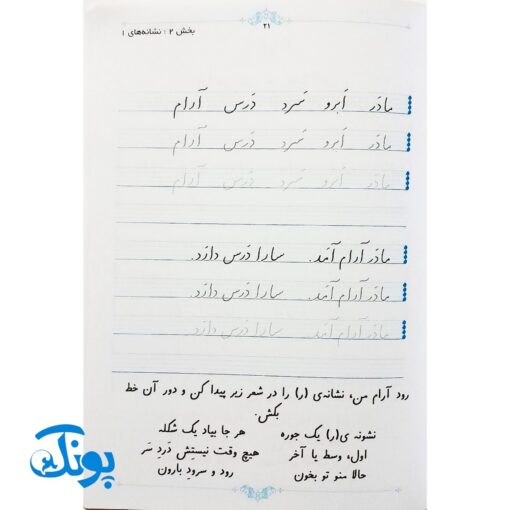 ۲۱
بخش ۲ : نشانه‌های ۱
مادَر اَبرو سَرد دَرس آرام
مادَر اَبرو سَرد دَرس آرام
مادَر اَبرو سَرد دَرس آرام
مادَر آرام آمَد. سارا دَرس دارَد.
مادَر آرام آمَد. سارا دَرس دارَد.
مادَر آرام آمَد. سارا دَرس دارَد.
رود آرام من، نشانه‌ی (ر) را در شعر زیر پیدا کن و دور آن خط
بکش.
نشونه ی(ر) یک جوره هر جا بیاد یک شکله
اول، وسط یا آخر هیچ وقت نیستِش دَردِ سَر
حالا منو تو بخون رود و سرودِ بارون
پونک